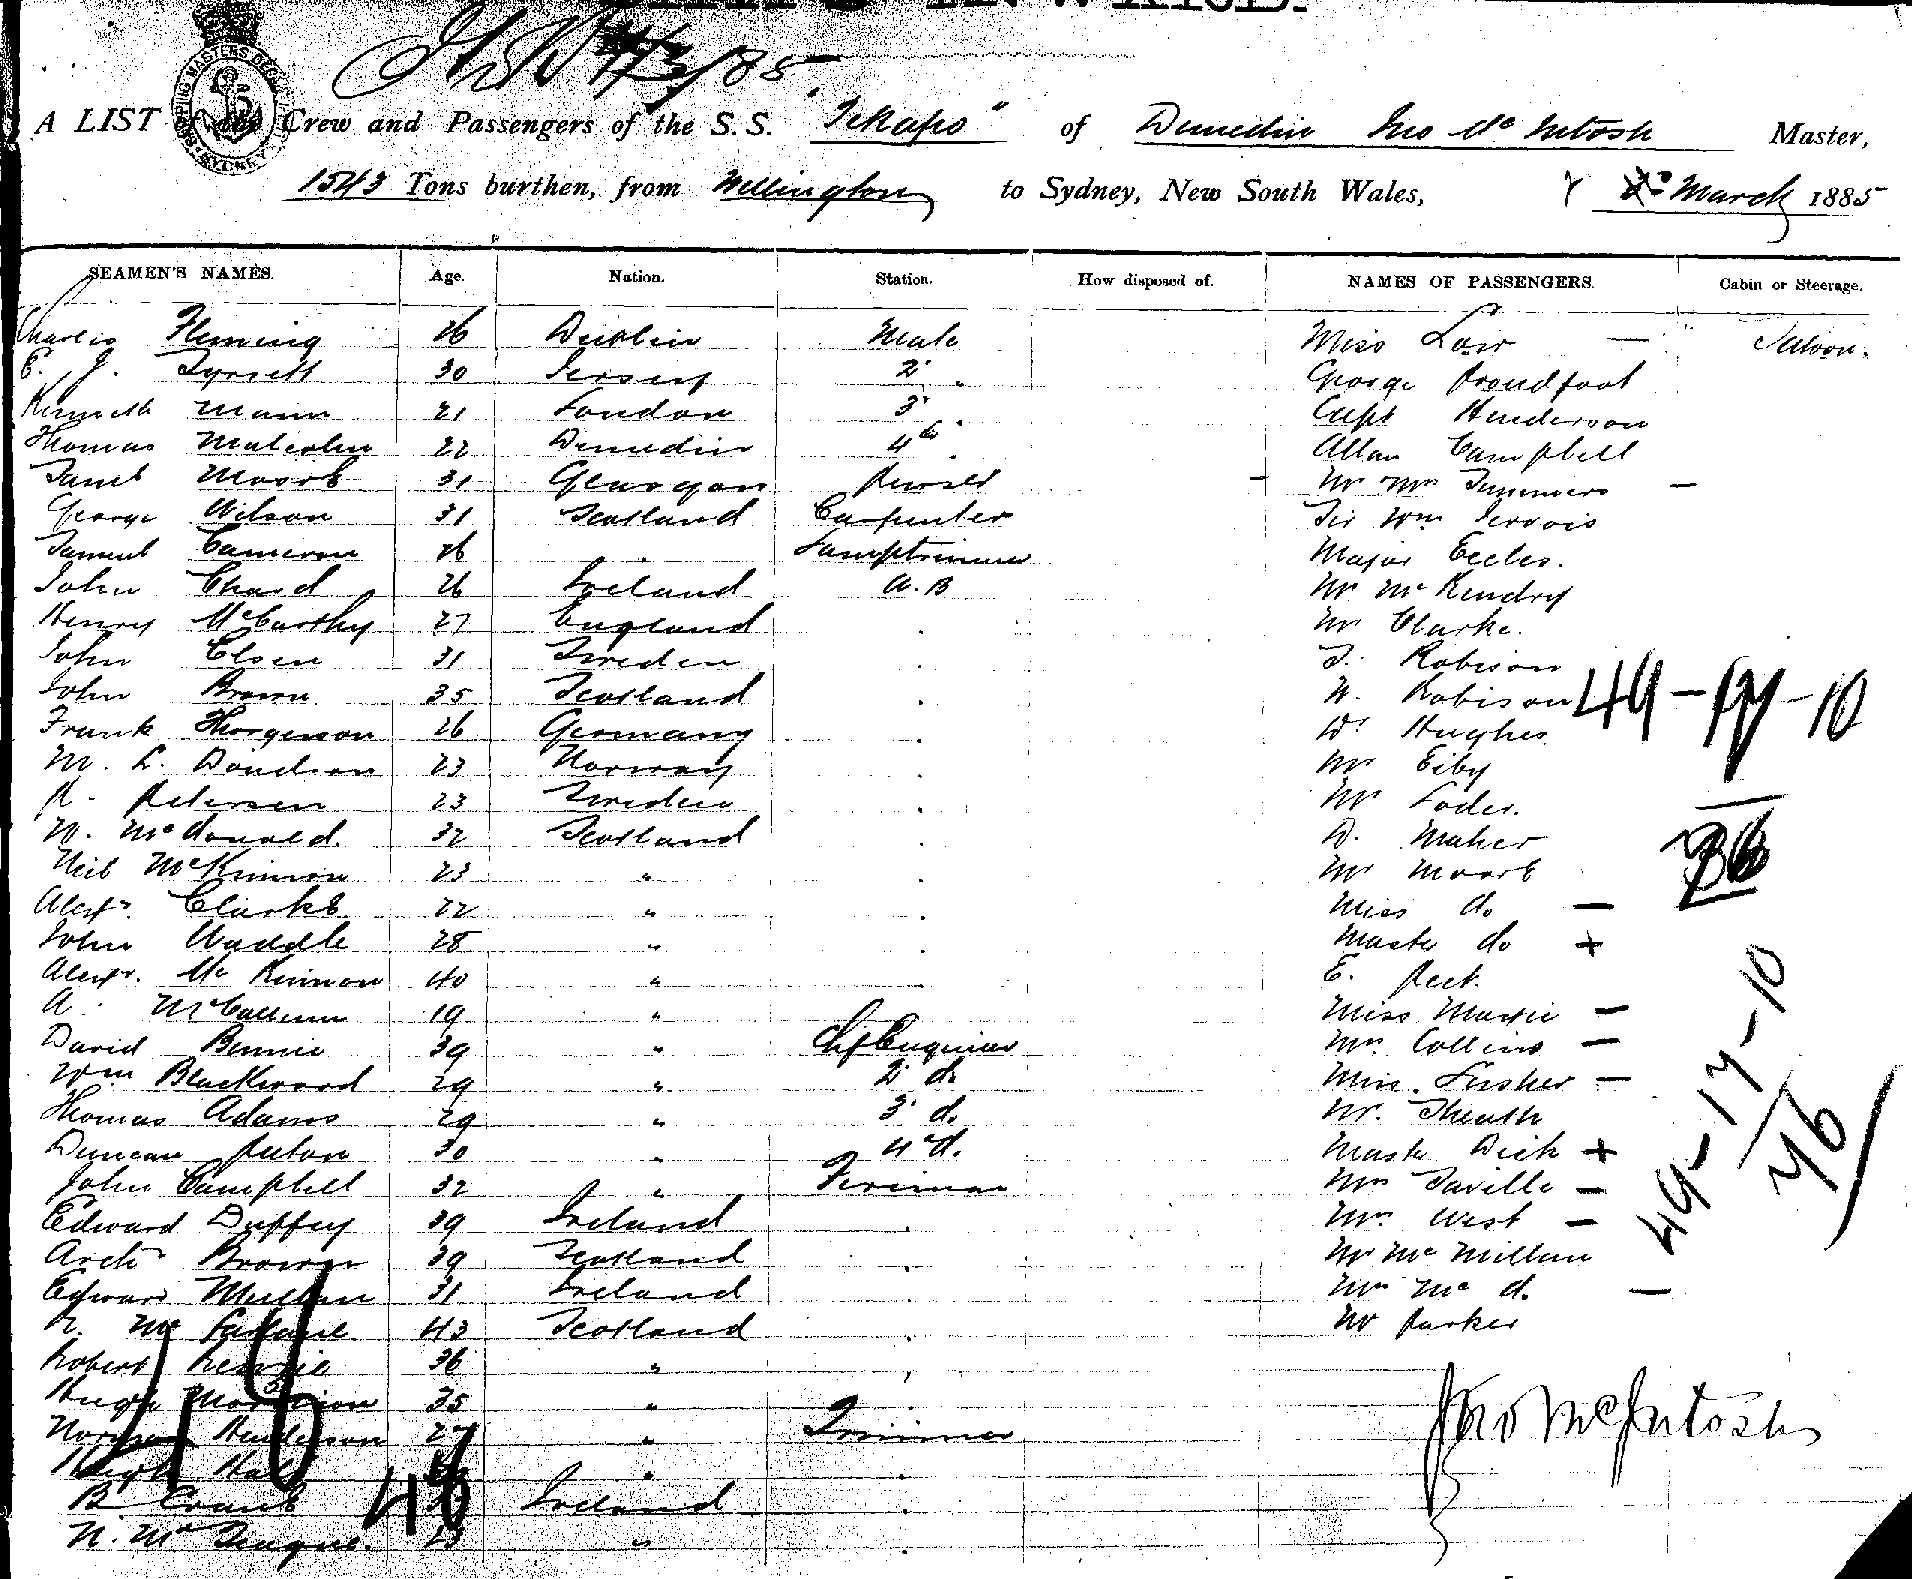 A LIST Crew and Passengers of the S.S. "Tekapo" of Dunedin Jno Mc Intosh Master,
1543 Tons burthen, from Wellington to Sydney, New South Wales, March 1885
SEAMEN'S NAMES. Age. Nation. Station. How disposed of. NAMES OF PASSENGERS. Cabin or Steerage.
Charles Fleming 26 Dublin Mate Miss Low — Saloon.
E. J. Tyrrell 30 Jersey 2 " George Proudfoot
Kenneth Mann 21 London 3 " Capt Henderson
Thomas Malcolm 22 Dunedin 4th " Allan Campbell
Moore 31 Glasgow — Mr Mrs —
George Wilson 31 Scotland Carpenter Sir Wm Jervois
Samuel Cameron 26 " Lamptrimmer Major Eccles.
John Chard 26 Ireland A.B Mr McKendry
Henry McCarthy 27 England " Mr Clarke.
John Olsen 31 Sweden " Robison
John Brown 35 Scotland " Robison 49-17-10
Frank Thorgerson 26 Germany " Dr Hughes
M. L. 23 Norway " Mr Eiby
Petersen 23 Sweden " Mr Loder.
McDonald. 32 Scotland " D. Maher
Neil McKinnon 23 " " Mr Moore
Alexr. Clarke 22 " " Miss do —
John Waddle 28 " " Master do +
Alexr. McKinnon 40 " " E. Peek.
A. McCallum 19 " " Miss —
David Rennie 39 " Chf Engineer Mrs Collins —
Wm Blackwood 29 " 2 do Miss Lusher —
Thomas Adams 29 " 3 do Mr.
Duncan 30 " 4 do Master Dick +
John Campbell 32 " Fireman Mrs Saville — 49-17-10
Edward Duffey 39 Ireland " Mrs West —
Archd Brown 39 Scotland " Mr McMillan
Edward 31 Ireland " Mrs Mc do —
Mc Farlane 43 Scotland " Mr Parker
Robert 36 " "
Hugh Morrison 35 " "
Norman Henderson 27 " Trimmer Jno McIntosh
Hugh " "
Ireland "
Mc Teague. 23 " "